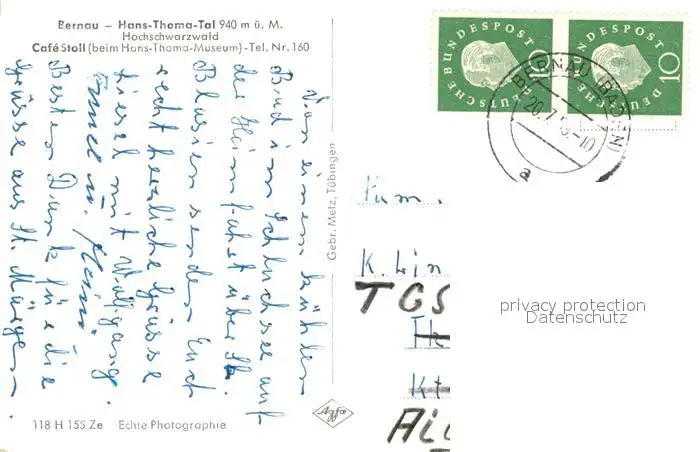 Bernau – Hans-Thoma-Tal 940 m ü. M.
Hochschwarzwald
Café Stoll (beim Hans-Thoma-Museum) - Tel. Nr. 160
Von einem kühlen
Bad im Schluchsee auf
der Heimfahrt über St.
Blasien senden Euch
recht herzliche Grüsse
Liesel mit Wolfgang
Besten Dank für die
Grüsse aus St. Märgen.
Gebr. Metz, Tübingen
118 H 155 Ze Echte Photographie
Agfa
DEUTSCHE BUNDESPOST
10
DEUTSCHE BUNDESPOST
10
BERNAU (BADEN)
a
Fam.
K. Lin
TGS
privacy protection
Datenschutz